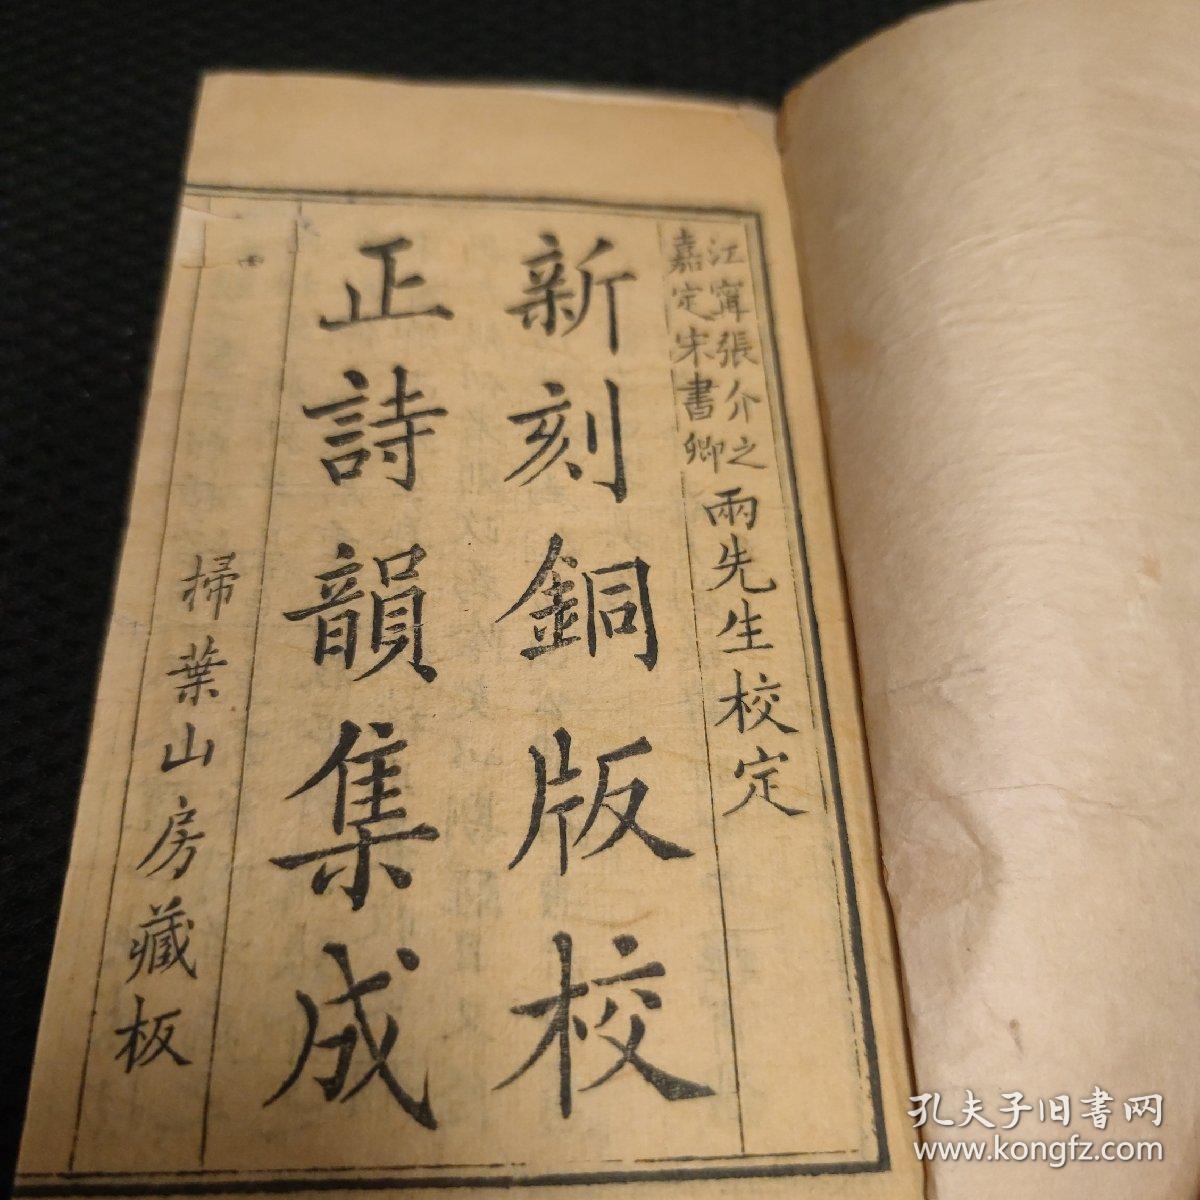 江寗張介之
嘉定宋書卿
兩先生校定
新刻銅版校
正詩韻集成
掃葉山房藏板
孔夫子旧書网
www.kongfz.com